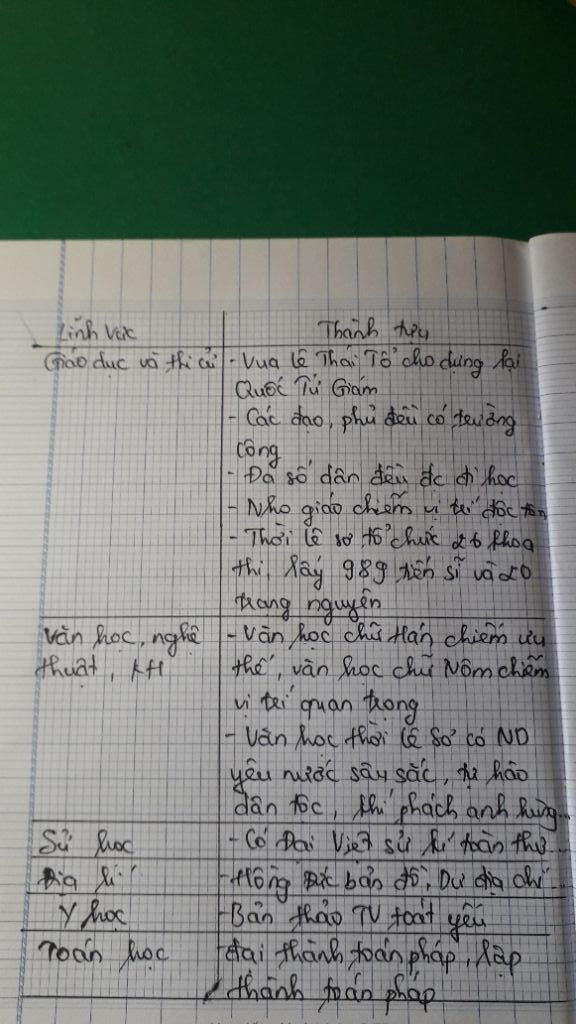 Lĩnh vực Thành tựu
Giáo dục và thi cử - Vua Lê Thái Tổ cho dựng lại
Quốc Tử Giám
- Các đạo, phủ đều có trường
công
- Đa số dân đều đc đi học
- Nho giáo chiếm vị trí độc tôn
- Thời Lê sơ tổ chức 26 khoa
thi, lấy 989 tiến sĩ và 20
trạng nguyên
Văn học, nghệ - Văn học chữ Hán chiếm ưu
thuật, KH thế, văn học chữ Nôm chiếm
vị trí quan trọng
- Văn học thời Lê Sơ có ND
yêu nước sâu sắc, tự hào
dân tộc, khí phách anh hùng...
Sử học - Có Đại Việt sử kí toàn thư...
Địa lí - Hồng Đức bản đồ, Dư địa chí...
Y học - Bản thảo TV toát yếu
Toán học - đại thành toán pháp, lập
thành toán pháp